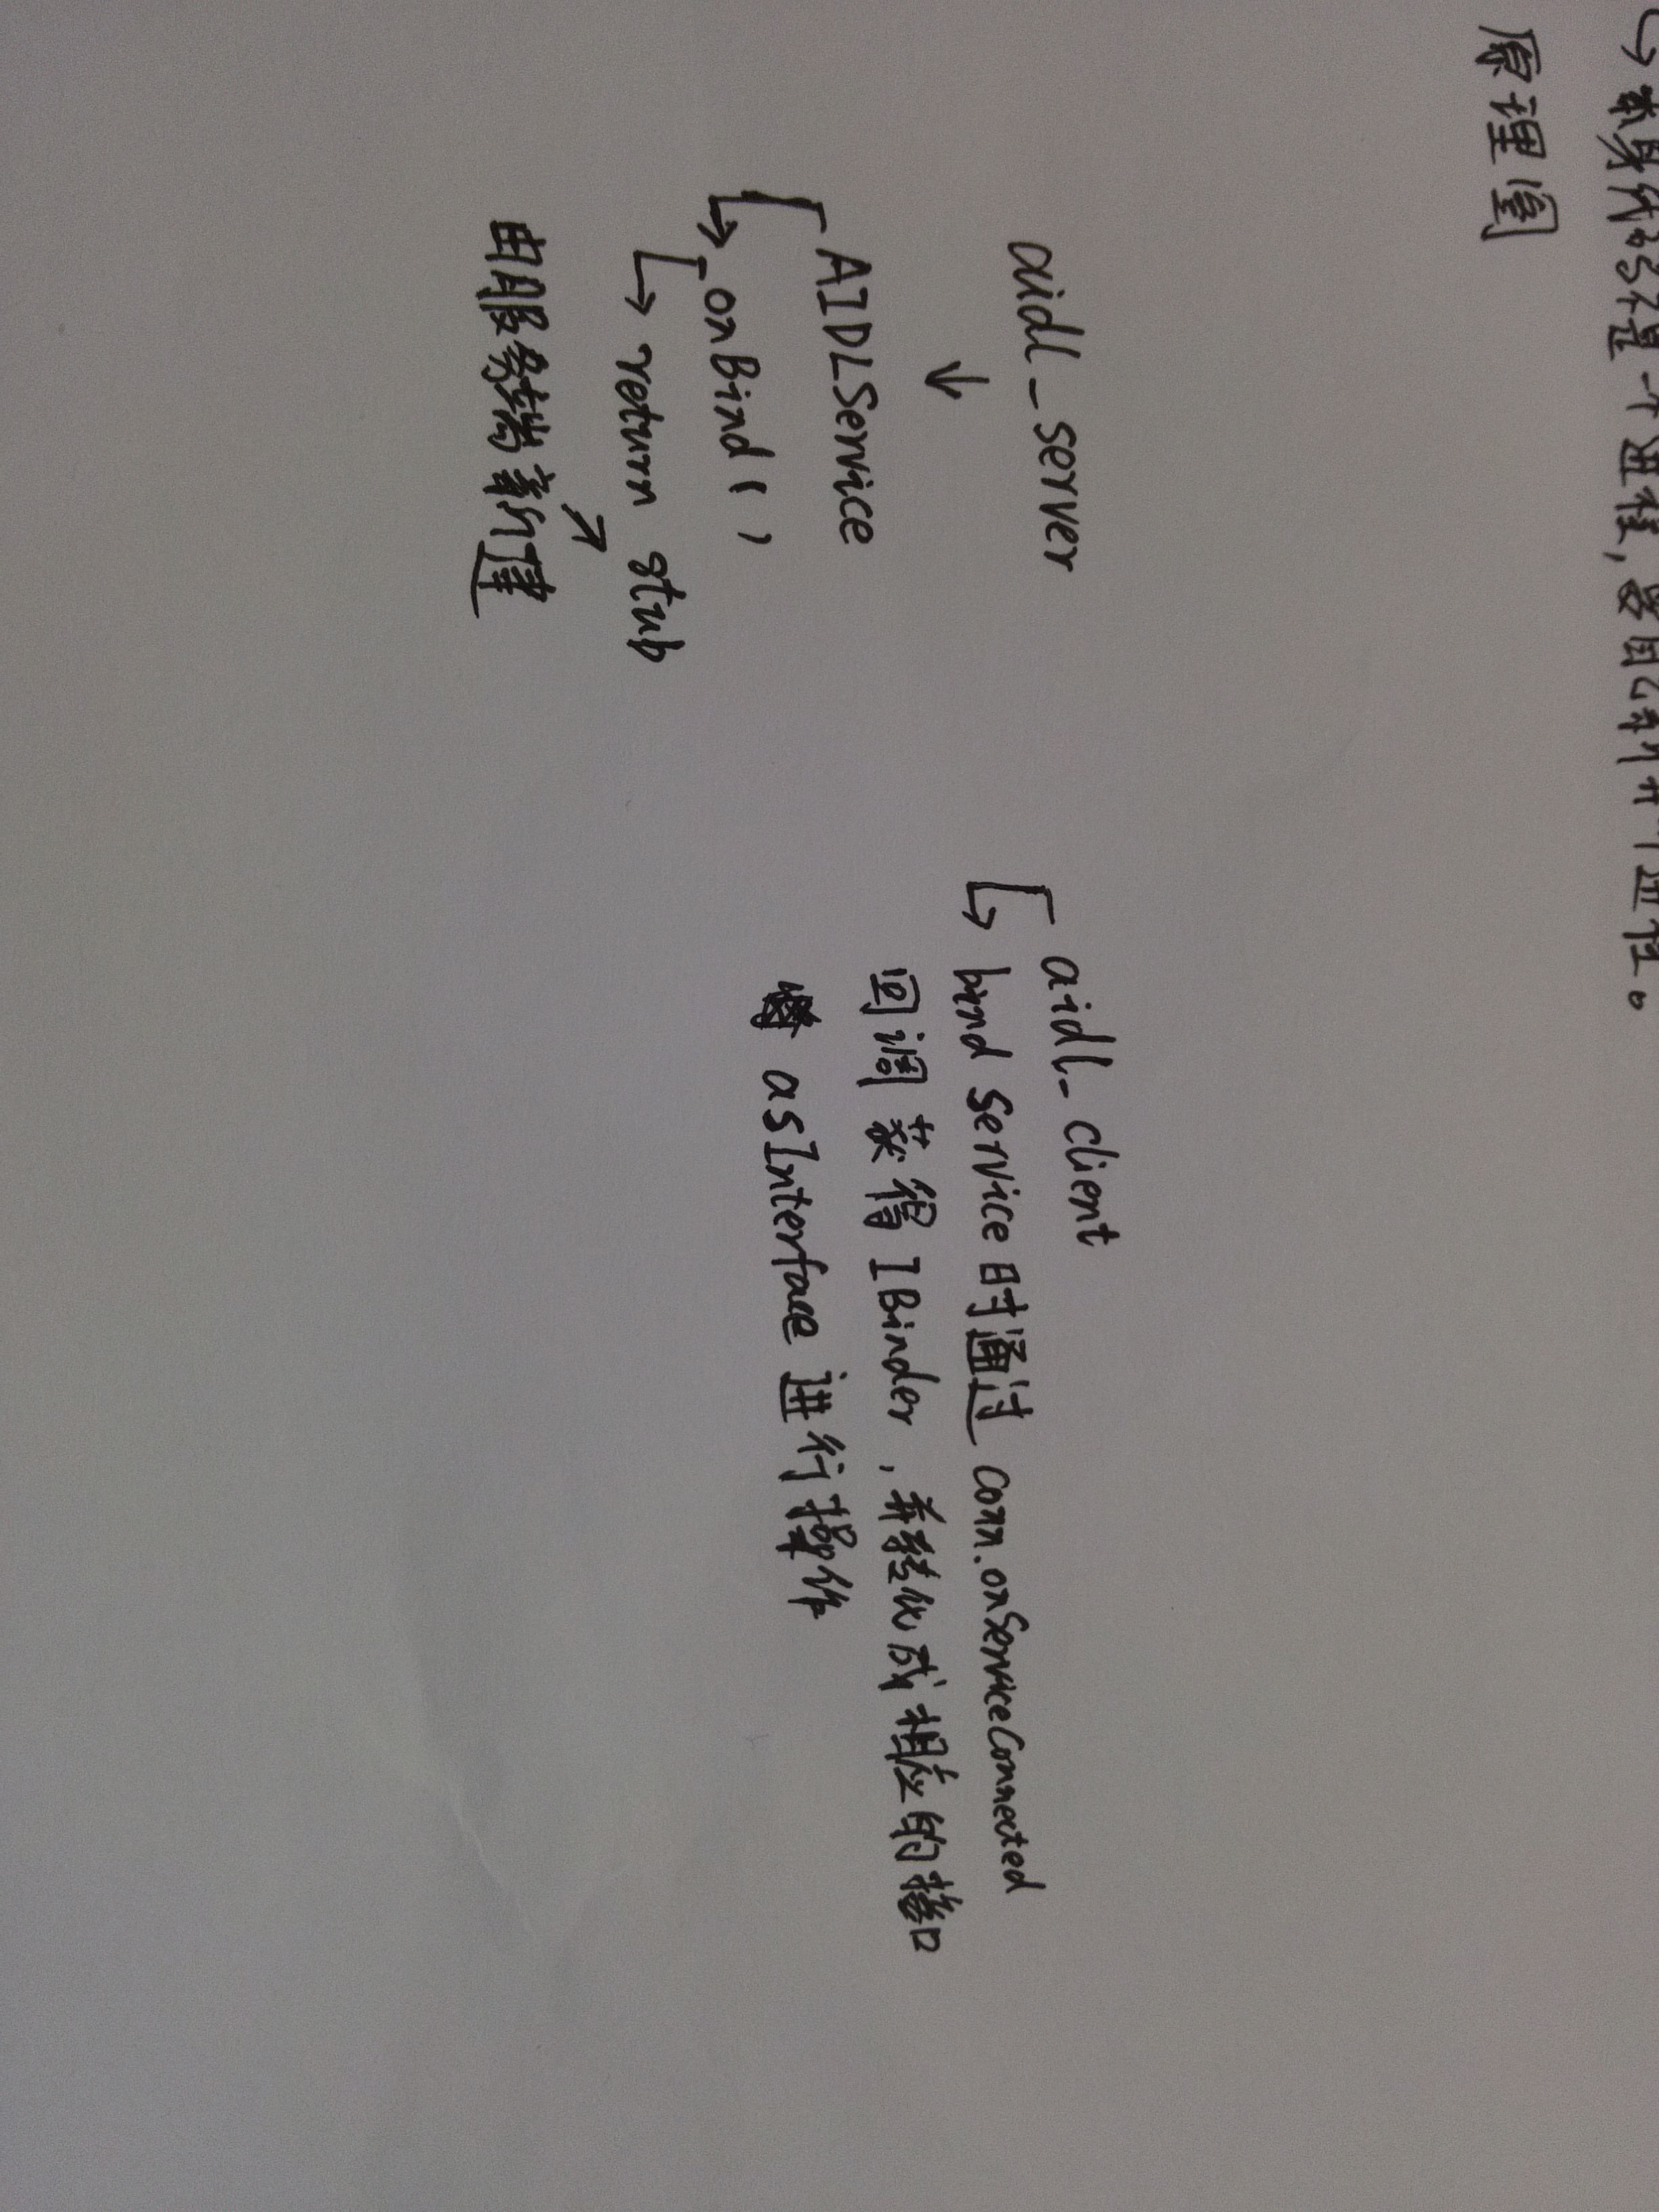 ↳ 本身代码不是一个进程，要自己新开个进程。
原理图
aidl_server
↓
AIDLService
↳ onBind()
↳ return stub
↗
由服务端新建
aidl_client
↳ bind service 时通过 conn.onServiceConnected
回调获得 IBinder，并转化成相应的接口
asInterface 进行操作